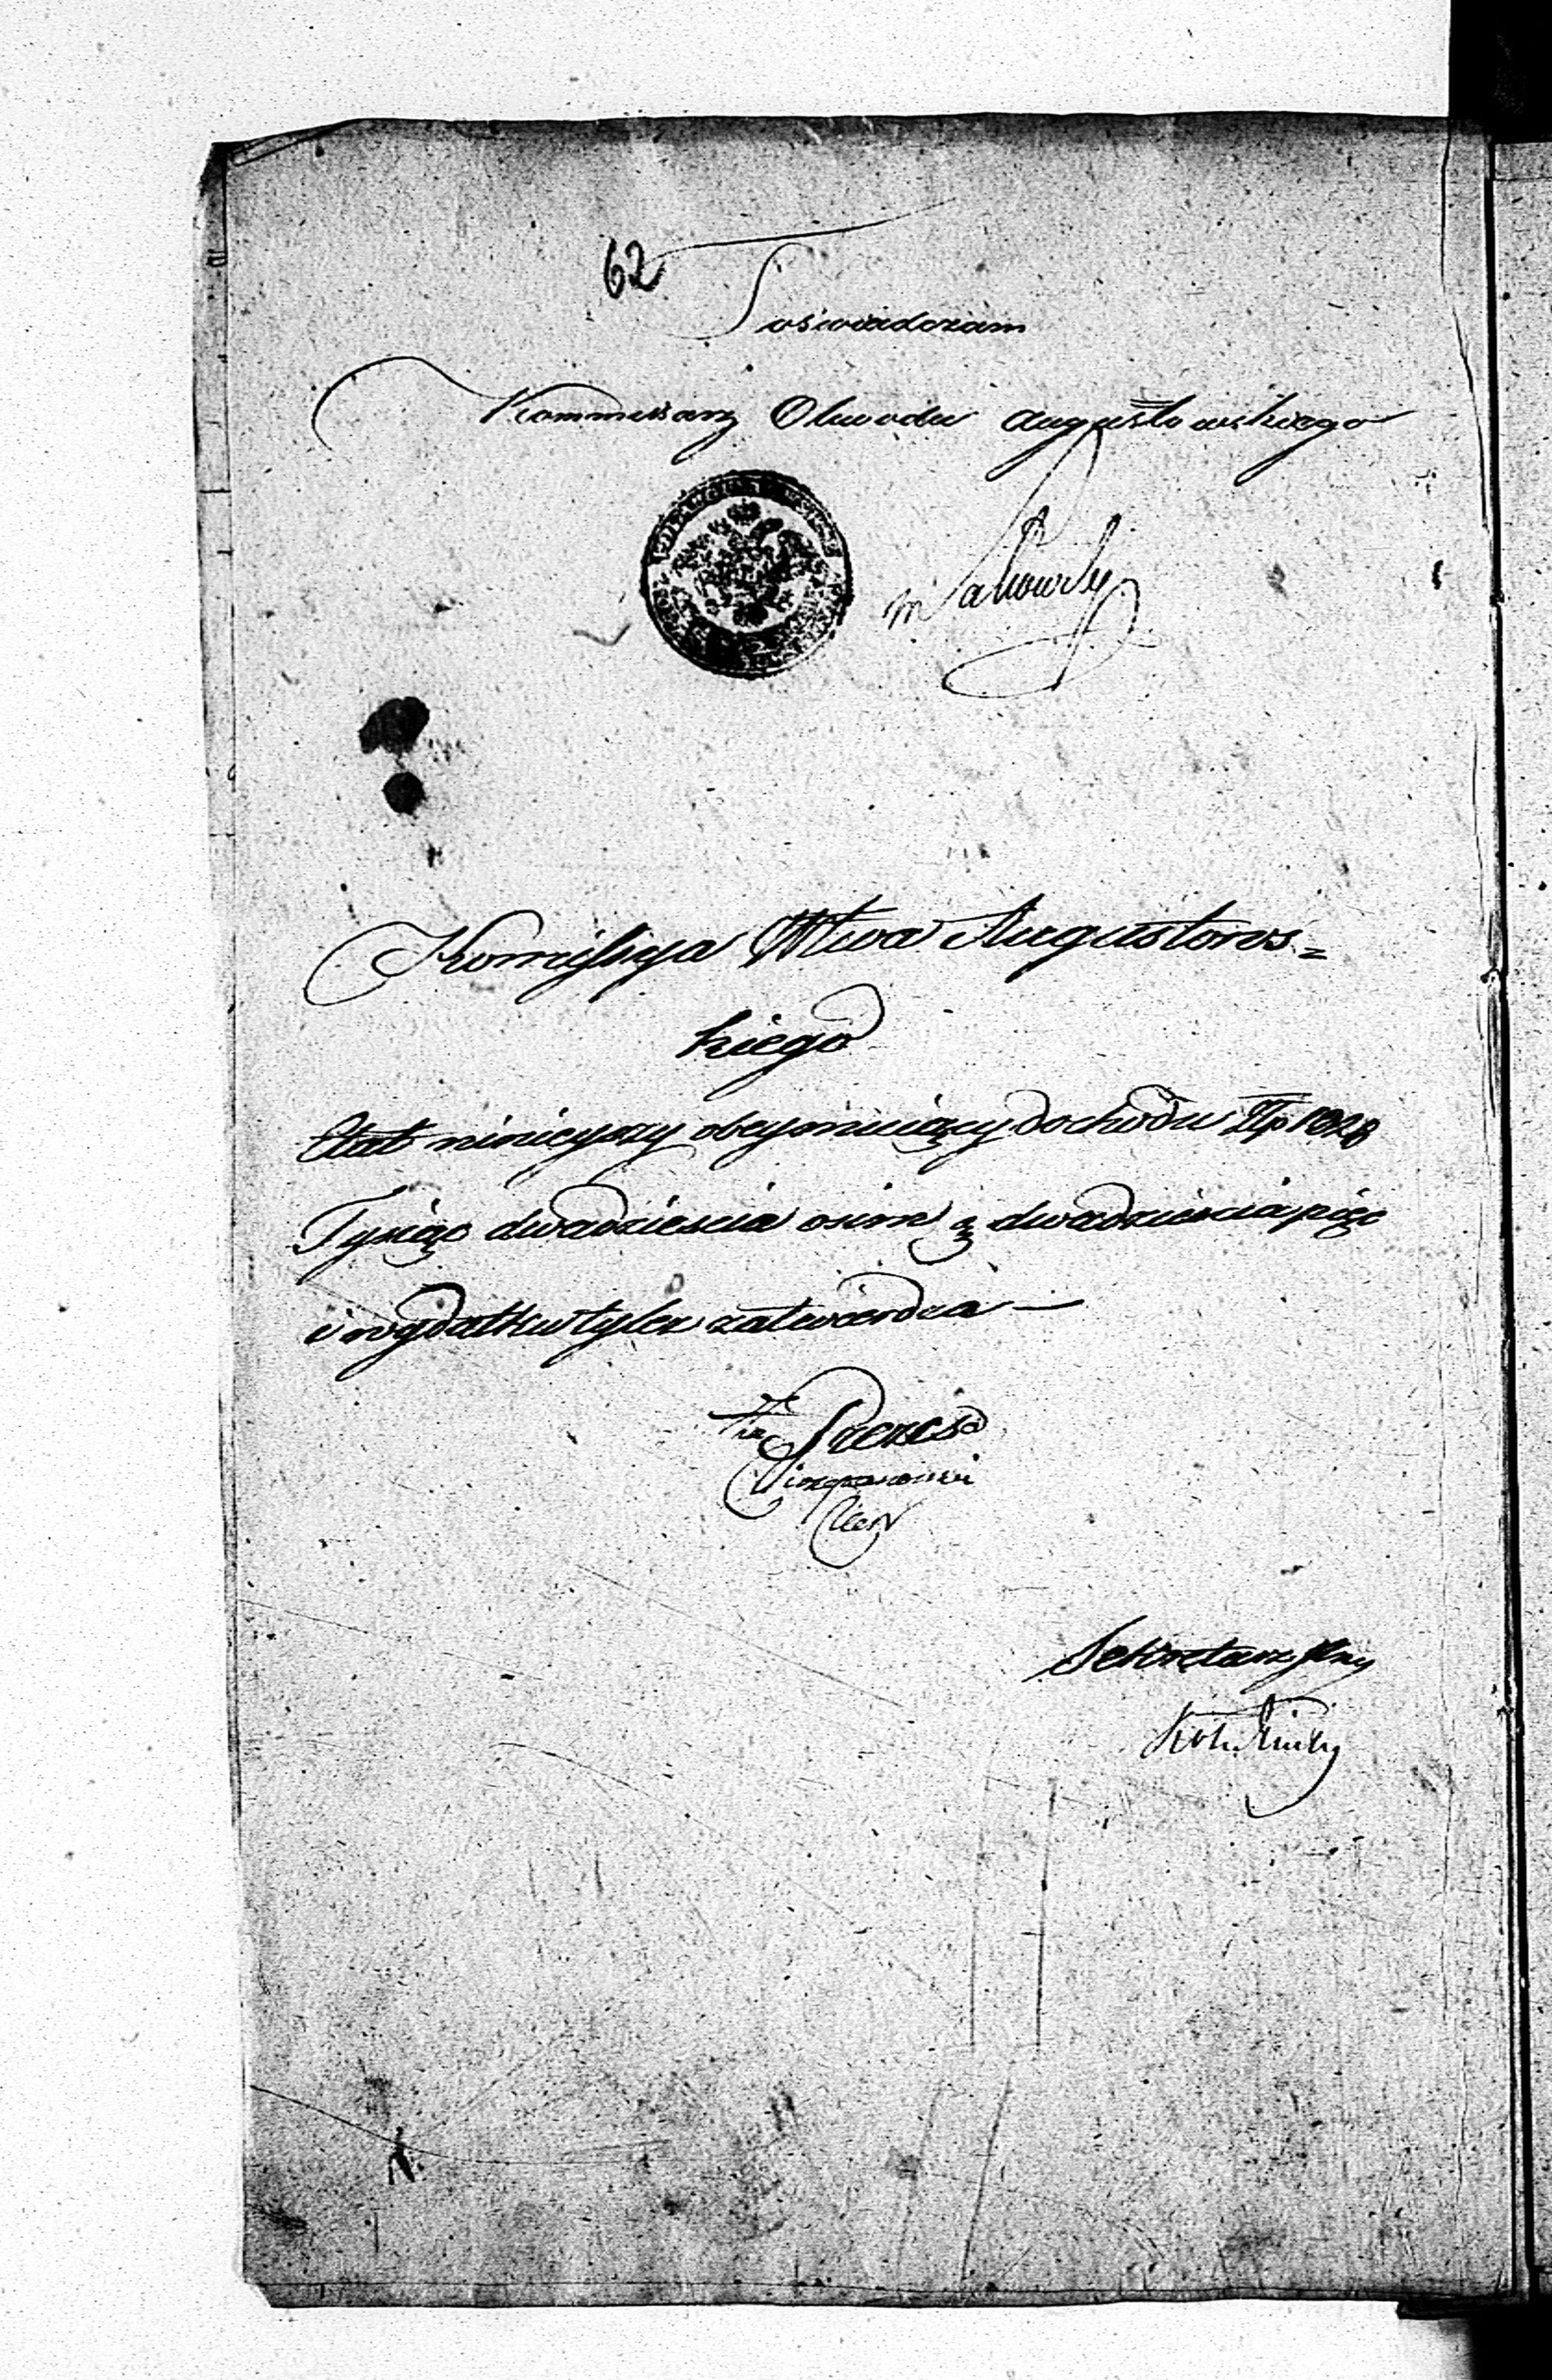 62
Poświadczam
Kommissarz Obwodu Augustowskiego
Kommissya Wtwa Augustows=
kiego
Etat ninieyszy obeymuiący dochodu Złp 1028
Tysiąc dwadzieścia osim g. dwadzieścia pięć
i wydatku tyleż zatwierdza —
Prezes
Sekretarz Jlny